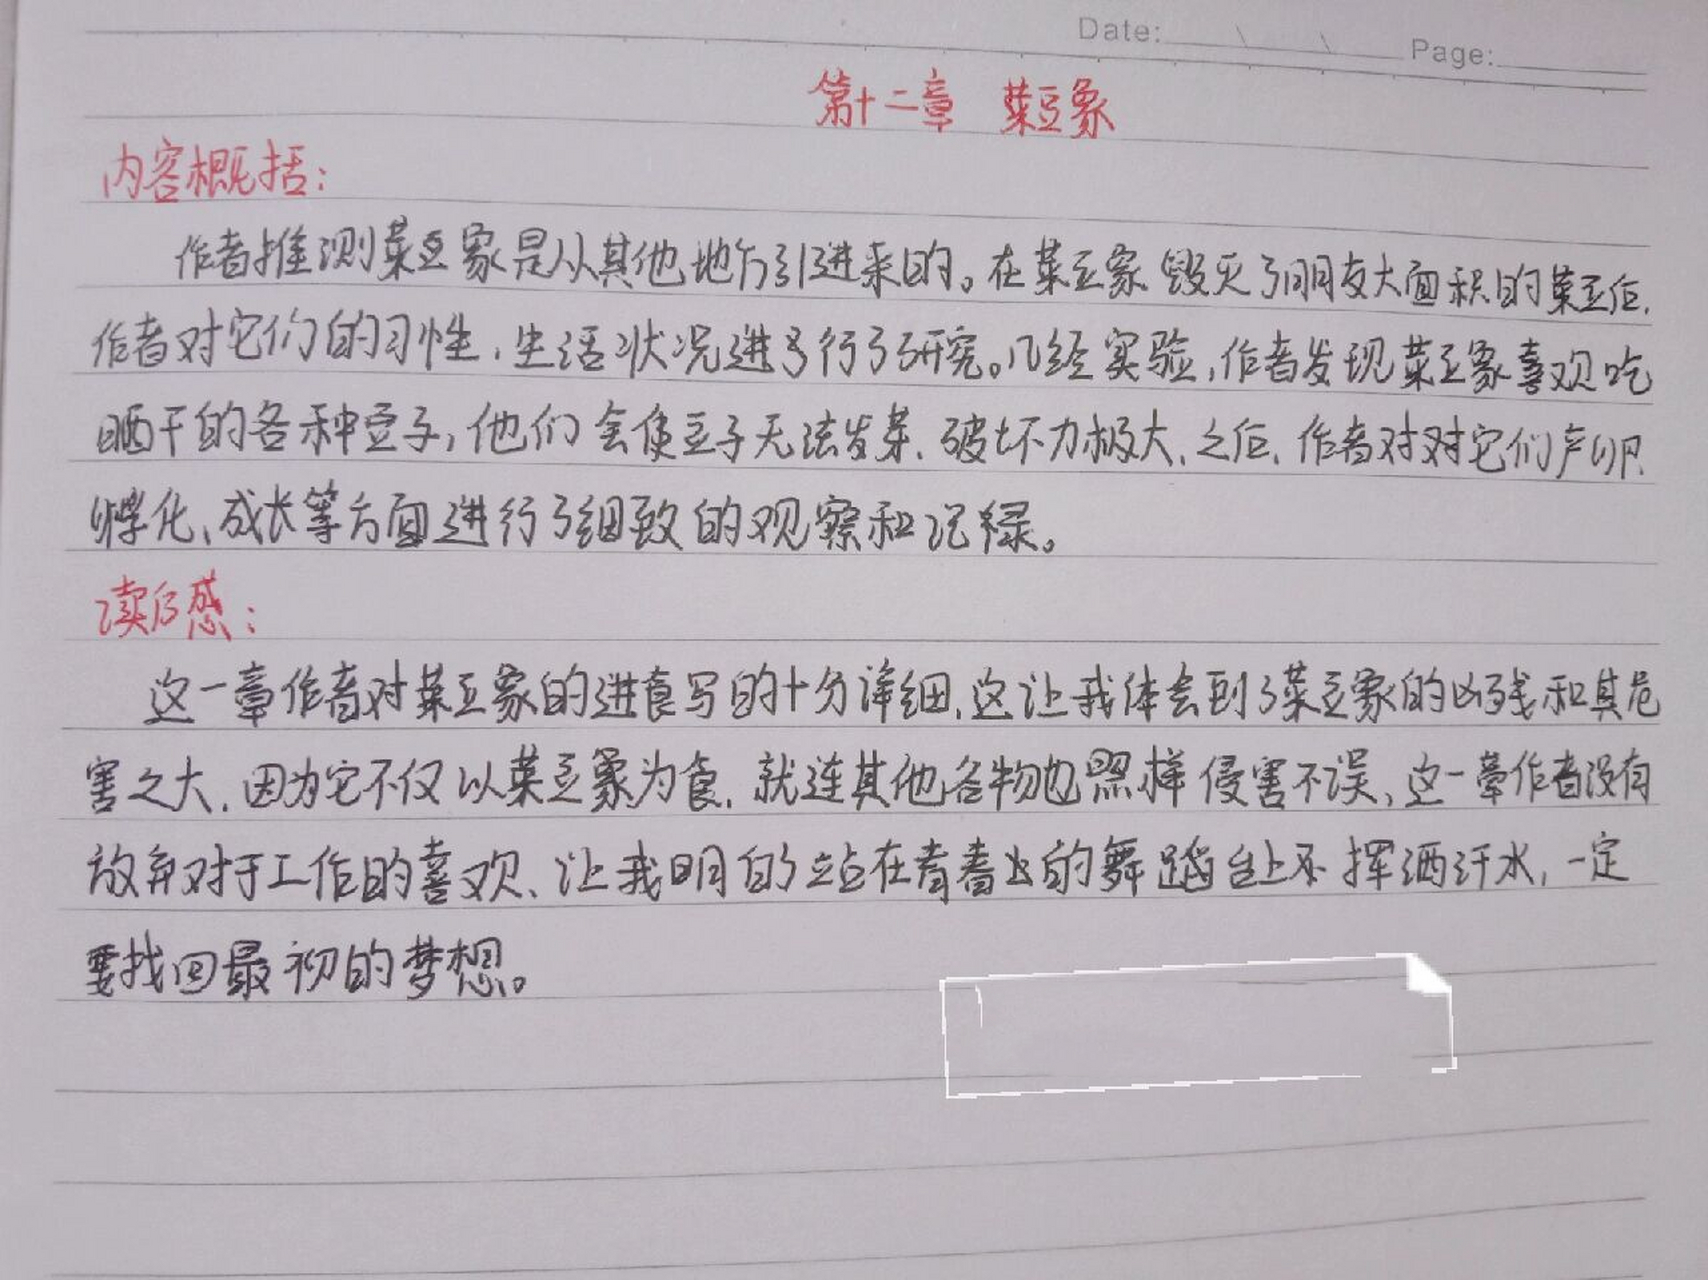 Date: Page:
第十二章 菜豆象
内容概括:
作者推测菜豆象是从其他地方引进来的。在菜豆象毁灭了朋友大面积的菜豆后,
作者对它们的习性,生活状况进了行了研究。几经实验,作者发现菜豆象喜欢吃
晒干的各种豆子,他们会使豆子无法发芽,破坏力极大,之后,作者对对它们产卵
孵化、成长等方面进行了细致的观察和记绿。
读后感:
这一章作者对菜豆象的进食写的十分详细,这让我体会到了菜豆象的凶残和其危
害之大,因为它不仅以菜豆象为食,就连其他谷物也照样侵害不误,这一章作者没有
放弃对于工作的喜欢、让我明白了站在青春出的舞蹈台上不挥洒汗水,一定
要找回最初的梦想。